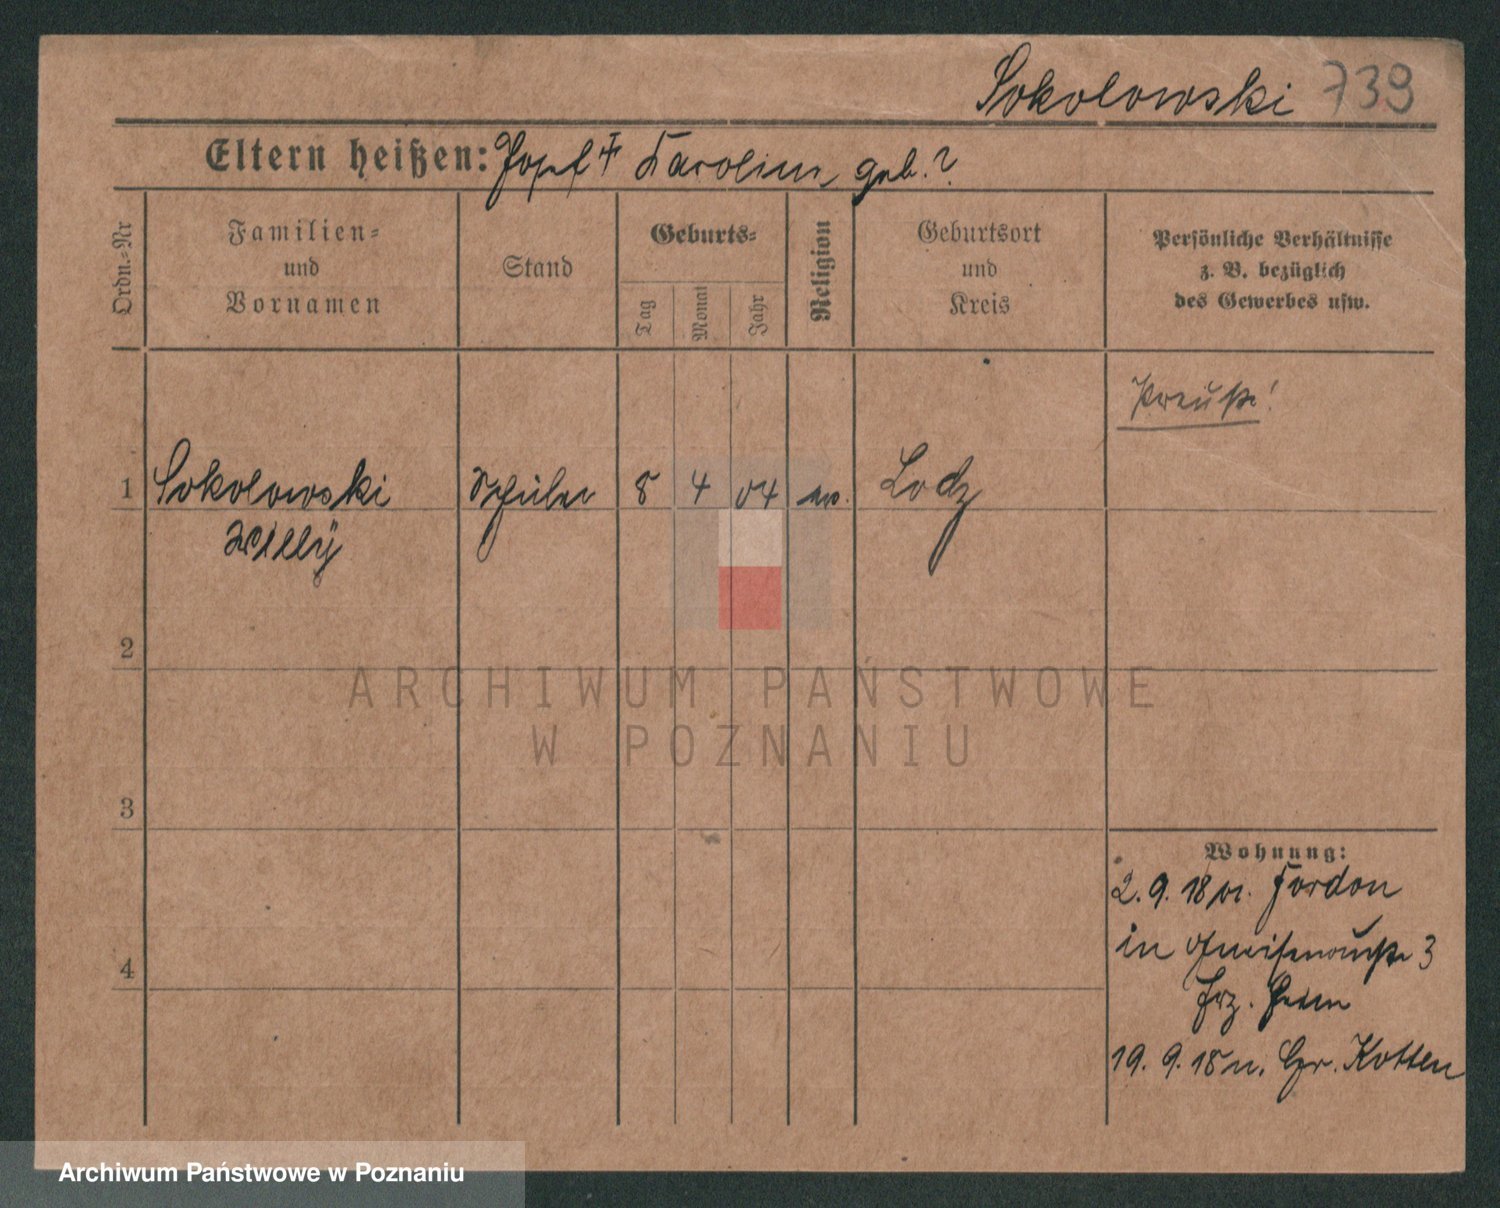 Sokolowski 739
Eltern heißen: Josef † Karoline geb. ?
Ordn.-Nr
Familien-
und
Vornamen
Stand
Geburts-
Tag
Monat
Jahr
Religion
Geburtsort
und
Kreis
Persönliche Verhältnisse
z. B. bezüglich
des Gewerbes usw.
Preuße!
1 Sokolowski Schüler 8 4 04 ev. Lodz
Willÿ
2
3
4
ARCHIWUM PAŃSTWOWE
W POZNANIU
Wohnung:
2. 9. 18 v. Fordon
in Gneisenaustr 3
Erz. Heim
19. 9. 18 n. Gr. Kotten
Archiwum Państwowe w Poznaniu